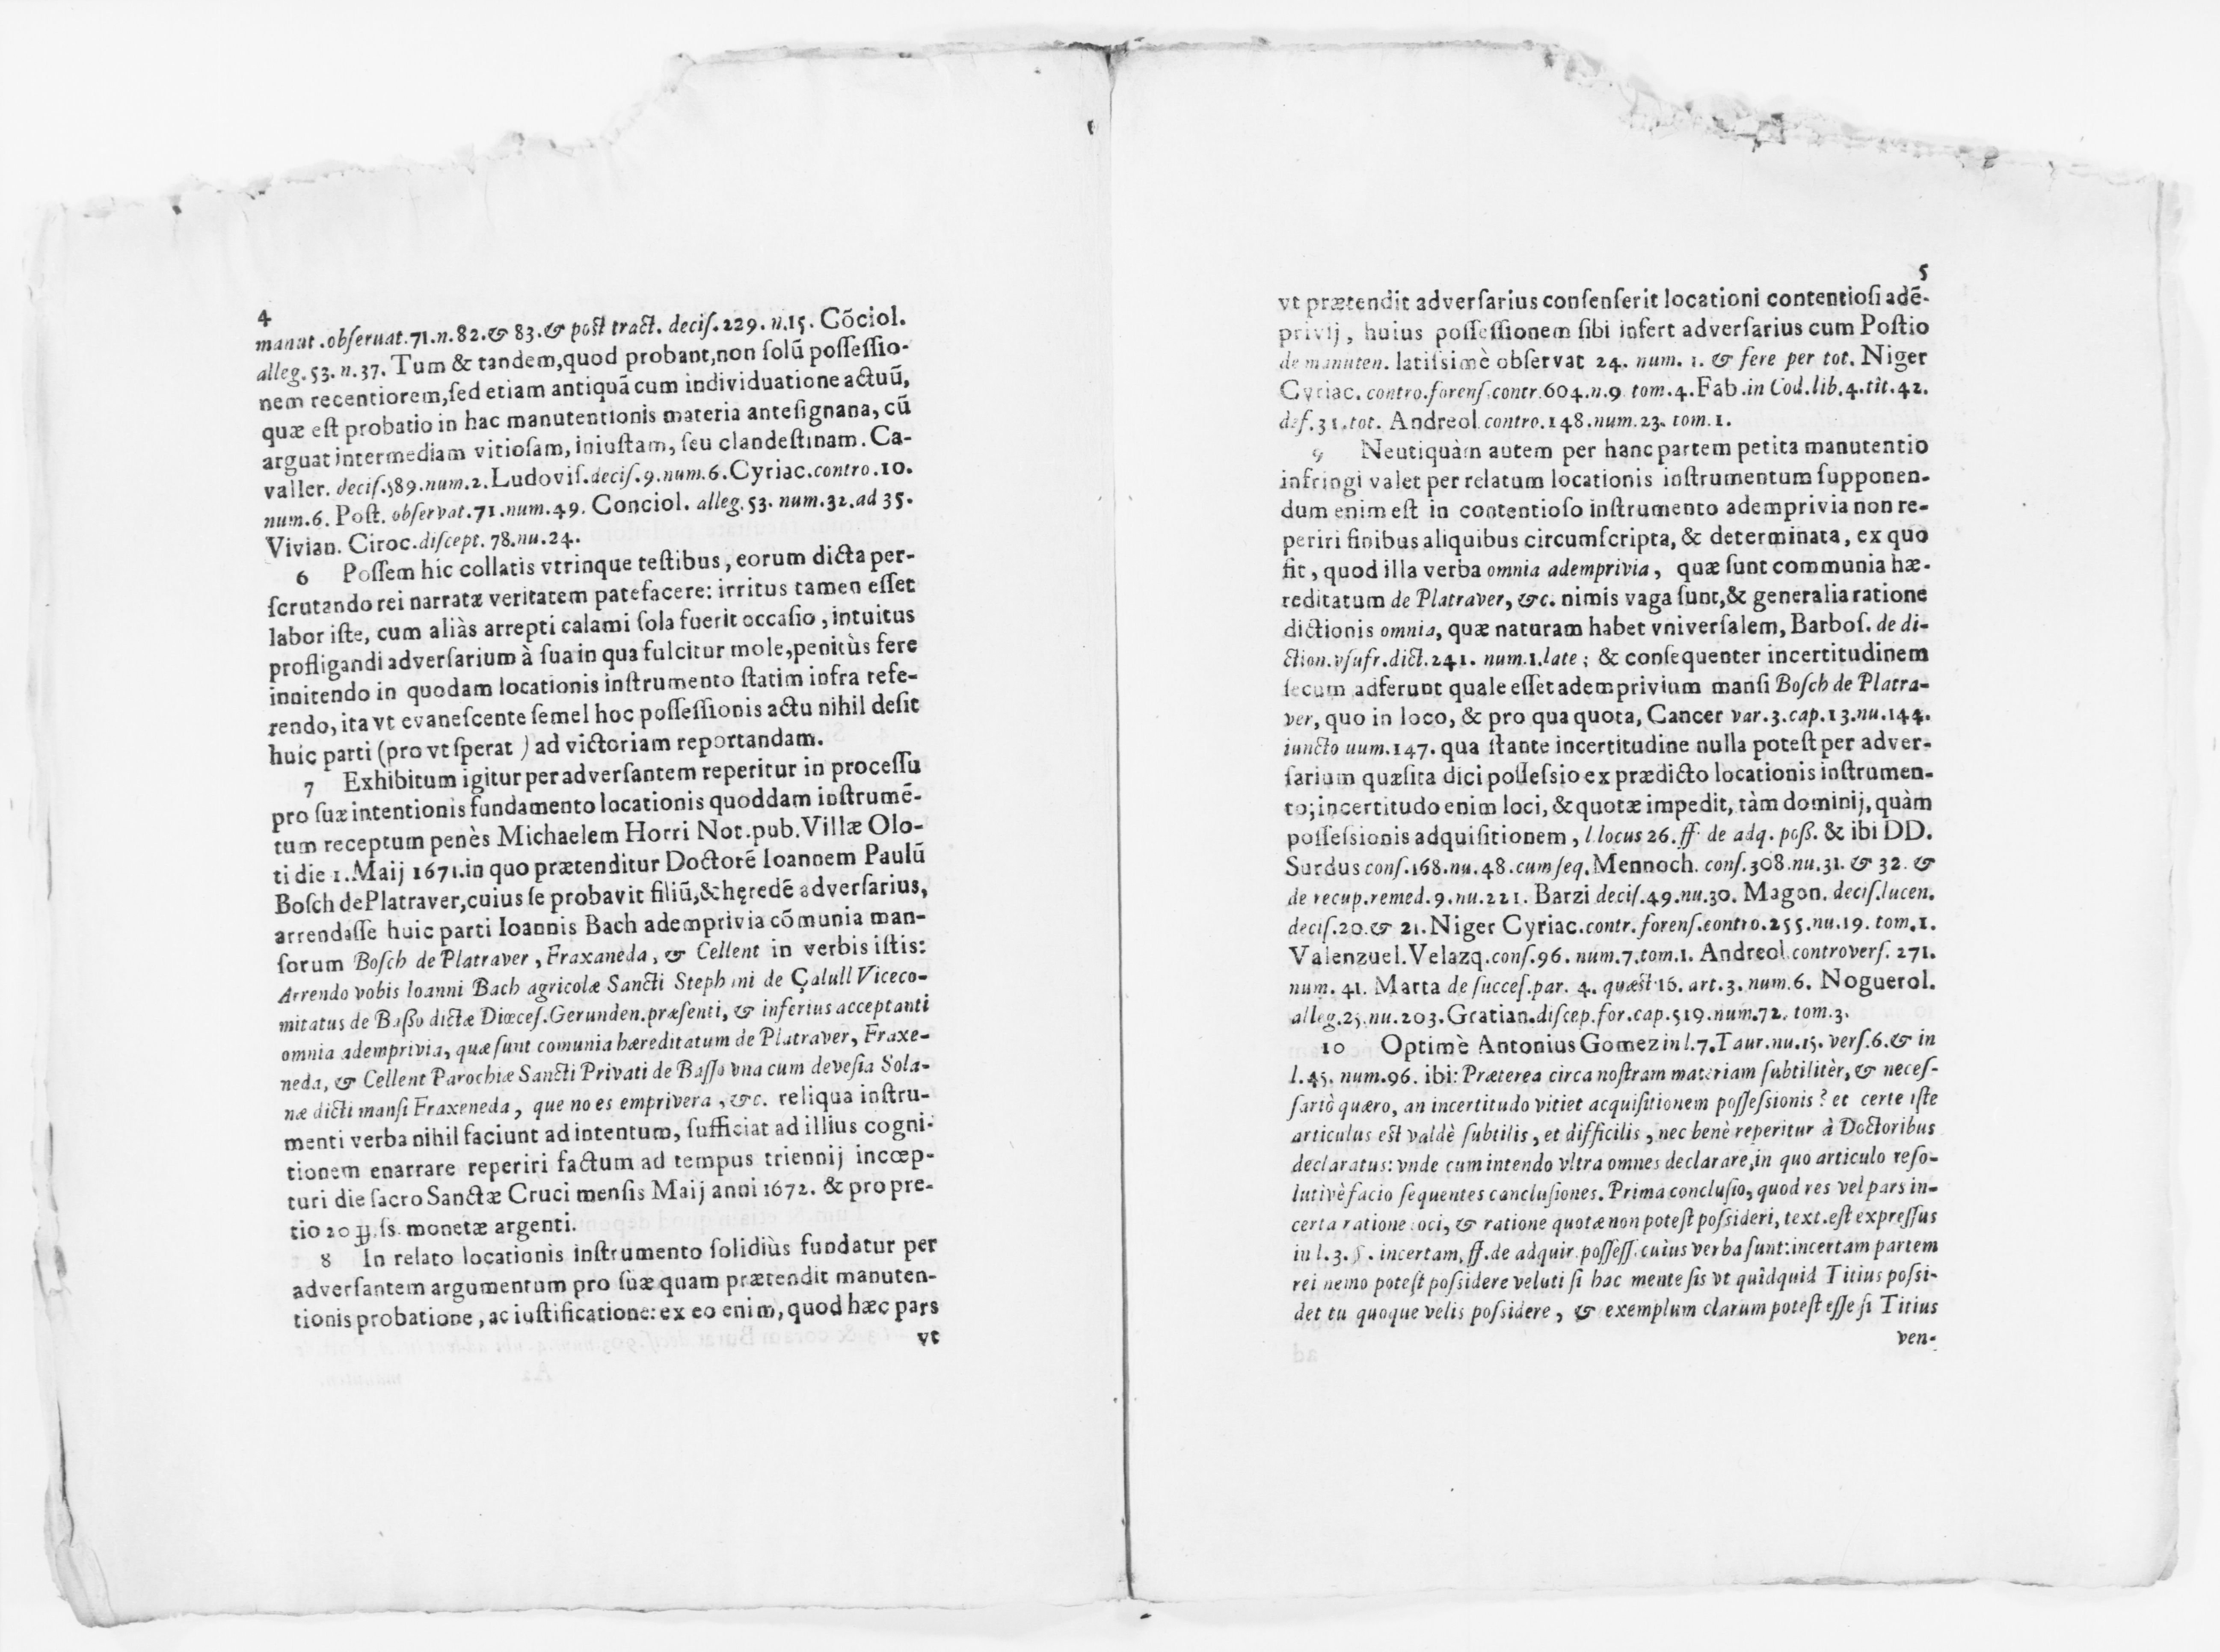 4
manut.obſeruat.71.n.82.& 83.& poſt tract. deciſ.229. n.15. Cõciol.
alleg.53.n.37. Tum & tandem,quod probant,non ſolũ poſſeſſio-
nem recentiorem,ſed etiam antiquã cum individuatione actuũ,
quæ eſt probatio in hac manutentionis materia anteſignana, cũ
arguat intermediam vitioſam, iniuſtam, ſeu clandeſtinam. Ca-
valler. deciſ.589.num.2.Ludoviſ.deciſ.9.num.6.Cyriac.contro.10.
num.6. Poſt. obſervat.71.num.49. Conciol. alleg.53. num.32.ad 35.
Vivian. Ciroc.diſcept. 78.nu.24.
6 Poſſem hic collatis vtrinque teſtibus, eorum dicta per-
ſcrutando rei narratæ veritatem patefacere: irritus tamen eſſet
labor iſte, cum aliàs arrepti calami ſola fuerit occaſio, intuitus
profligandi adverſarium à ſua in qua fulcitur mole,penitùs fere
innitendo in quodam locationis inſtrumento ſtatim infra refe-
rendo, ita vt evaneſcente ſemel hoc poſſeſſionis actu nihil deſit
huic parti (pro vt ſperat ) ad victoriam reportandam.
7 Exhibitum igitur per adverſantem reperitur in proceſſu
pro ſuæ intentionis fundamento locationis quoddam inſtrumẽ-
tum receptum penès Michaelem Horri Not.pub.Villæ Olo-
ti die 1.Maij 1671.in quo prætenditur Doctorẽ Ioannem Paulũ
Boſch de Platraver,cuius ſe probavit filiũ,& hęredẽ adverſarius,
arrendaſſe huic parti Ioannis Bach ademprivia cõmunia man-
ſorum Boſch de Platraver, Fraxaneda, & Cellent in verbis iſtis:
Arrendo vobis Ioanni Bach agricolæ Sancti Stephani de Çalull Viceco-
mitatus de Baßo dictæ Diœceſ.Gerunden.præſenti, & inferius acceptanti
omnia ademprivia, quæ ſunt comunia hæreditatum de Platraver, Fraxe-
neda, & Cellent Parochiæ Sancti Privati de Baſſo vna cum deveſia Sola-
næ dicti manſi Fraxeneda, que no es emprivera, &c. reliqua inſtru-
menti verba nihil faciunt ad intentum, ſufficiat ad illius cogni-
tionem enarrare reperiri factum ad tempus triennij incœp-
turi die ſacro Sanctæ Cruci menſis Maij anni 1672. & pro pre-
tio 20 ſs. monetæ argenti.
8 In relato locationis inſtrumento ſolidiùs fundatur per
adverſantem argumentum pro ſuæ quam prætendit manuten-
tionis probatione, ac iuſtificatione: ex eo enim, quod hæc pars
vt
5
vt prætendit adverſarius conſenſerit locationi contentioſi adẽ-
privij, huius poſſeſſionem ſibi infert adverſarius cum Poſtio
de manuten. latiſsimè obſervat 24. num. 1. & fere per tot. Niger
Cyriac. contro.forenſ.contr.604.n.9 tom.4.Fab.in Cod.lib.4.tit.42.
def.31.tot. Andreol contro.148.num.23. tom.1.
9 Neutiquàm autem per hanc partem petita manutentio
infringi valet per relatum locationis inſtrumentum ſupponen-
dum enim eſt in contentioſo inſtrumento ademprivia non re-
periri finibus aliquibus circumſcripta, & determinata, ex quo
fit, quod illa verba omnia ademprivia, quæ ſunt communia hæ-
reditatum de Platraver, &c. nimis vaga ſunt,& generalia ratione
dictionis omnia, quæ naturam habet vniverſalem, Barboſ. de di-
ction.vſufr.dict.241. num.1.late; & conſequenter incertitudinem
ſecum adferunt quale eſſet ademprivium manſi Boſch de Platra-
ver, quo in loco, & pro qua quota, Cancer var.3.cap.13.nu.144.
iuncto uum.147. qua ſtante incertitudine nulla poteſt per adver-
ſarium quæſita dici poſſeſsio ex prædicto locationis inſtrumen-
to;incertitudo enim loci, & quotæ impedit, tàm dominij, quàm
poſſeſsionis adquiſitionem, l.locus 26.ff. de adq. poß. & ibi DD.
Surdus conſ.168.nu.48.cum ſeq. Mennoch. conſ.308.nu.31. & 32. &
de recup.remed.9.nu.221. Barzi deciſ.49.nu.30. Magon. deciſ.lucen.
deciſ.20.& 21.Niger Cyriac.contr.forenſ.contro.255.nu.19. tom.1.
Valenzuel.Velazq.conſ.96. num.7.tom.1. Andreol.controverſ. 271.
num. 41. Marta de ſucceſ.par. 4. quæſt 16. art.3. num.6. Noguerol.
alleg.25.nu.203.Gratian.diſcep.for.cap.519.num.72. tom.3.
10 Optimè Antonius Gomez in l.7.Taur.nu.15. verſ.6.& in
l.45. num.96. ibi: Præterea circa noſtram materiam ſubtilitèr, & neceſ-
ſariò quæro, an incertitudo vitiet acquiſitionem poſſeſsionis? et certe iſte
articulus eſt valdè ſubtilis, et difficilis, nec benè reperitur à Doctoribus
declaratus: vnde cum intendo vltra omnes declarare,in quo articulo reſo-
lutivè facio ſequentes concluſiones. Prima concluſio, quod res vel pars in-
certa ratione loci, & ratione quotæ non poteſt poſsideri, text.eſt expreſſus
in l.3. §. incertam, ff.de adquir.poſſeſſ. cuius verba ſunt: incertam partem
rei nemo poteſt poſsidere veluti ſi hac mente ſis vt quidquid Titius poſsi-
det tu quoque velis poſsidere, & exemplum clarum poteſt eſſe ſi Titius
ven-